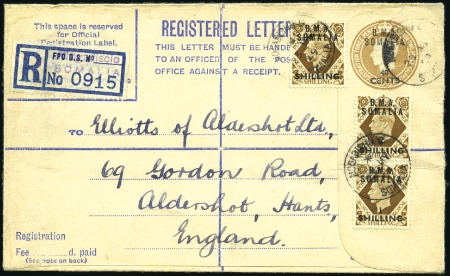 This space is reserved
for Official
Registration Label.
REGISTERED LETTER
THIS LETTER MUST BE HANDED
TO AN OFFICER OF THE POST
OFFICE AGAINST A RECEIPT.
R
FPO D.S. No
SOMALIA
No 0915
B.M.A.
SOMALIA
CENTS
B.M.A.
SOMALIA
SHILLING
B.M.A.
SOMALIA
SHILLING
B.M.A.
SOMALIA
SHILLING
TO Elliotts of Aldershot Ltd,
69 Gordon Road,
Aldershot, Hants,
England.
Registration
Fee d. paid
(See note on back)